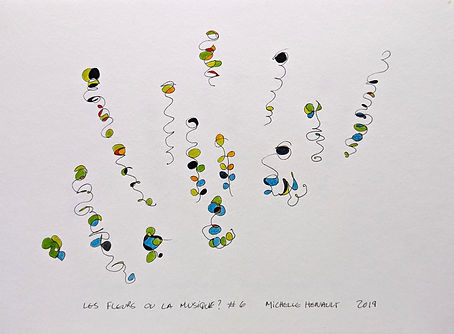 LES FLEURS OU LA MUSIQUE? #6 MICHELLE HENAULT 2019